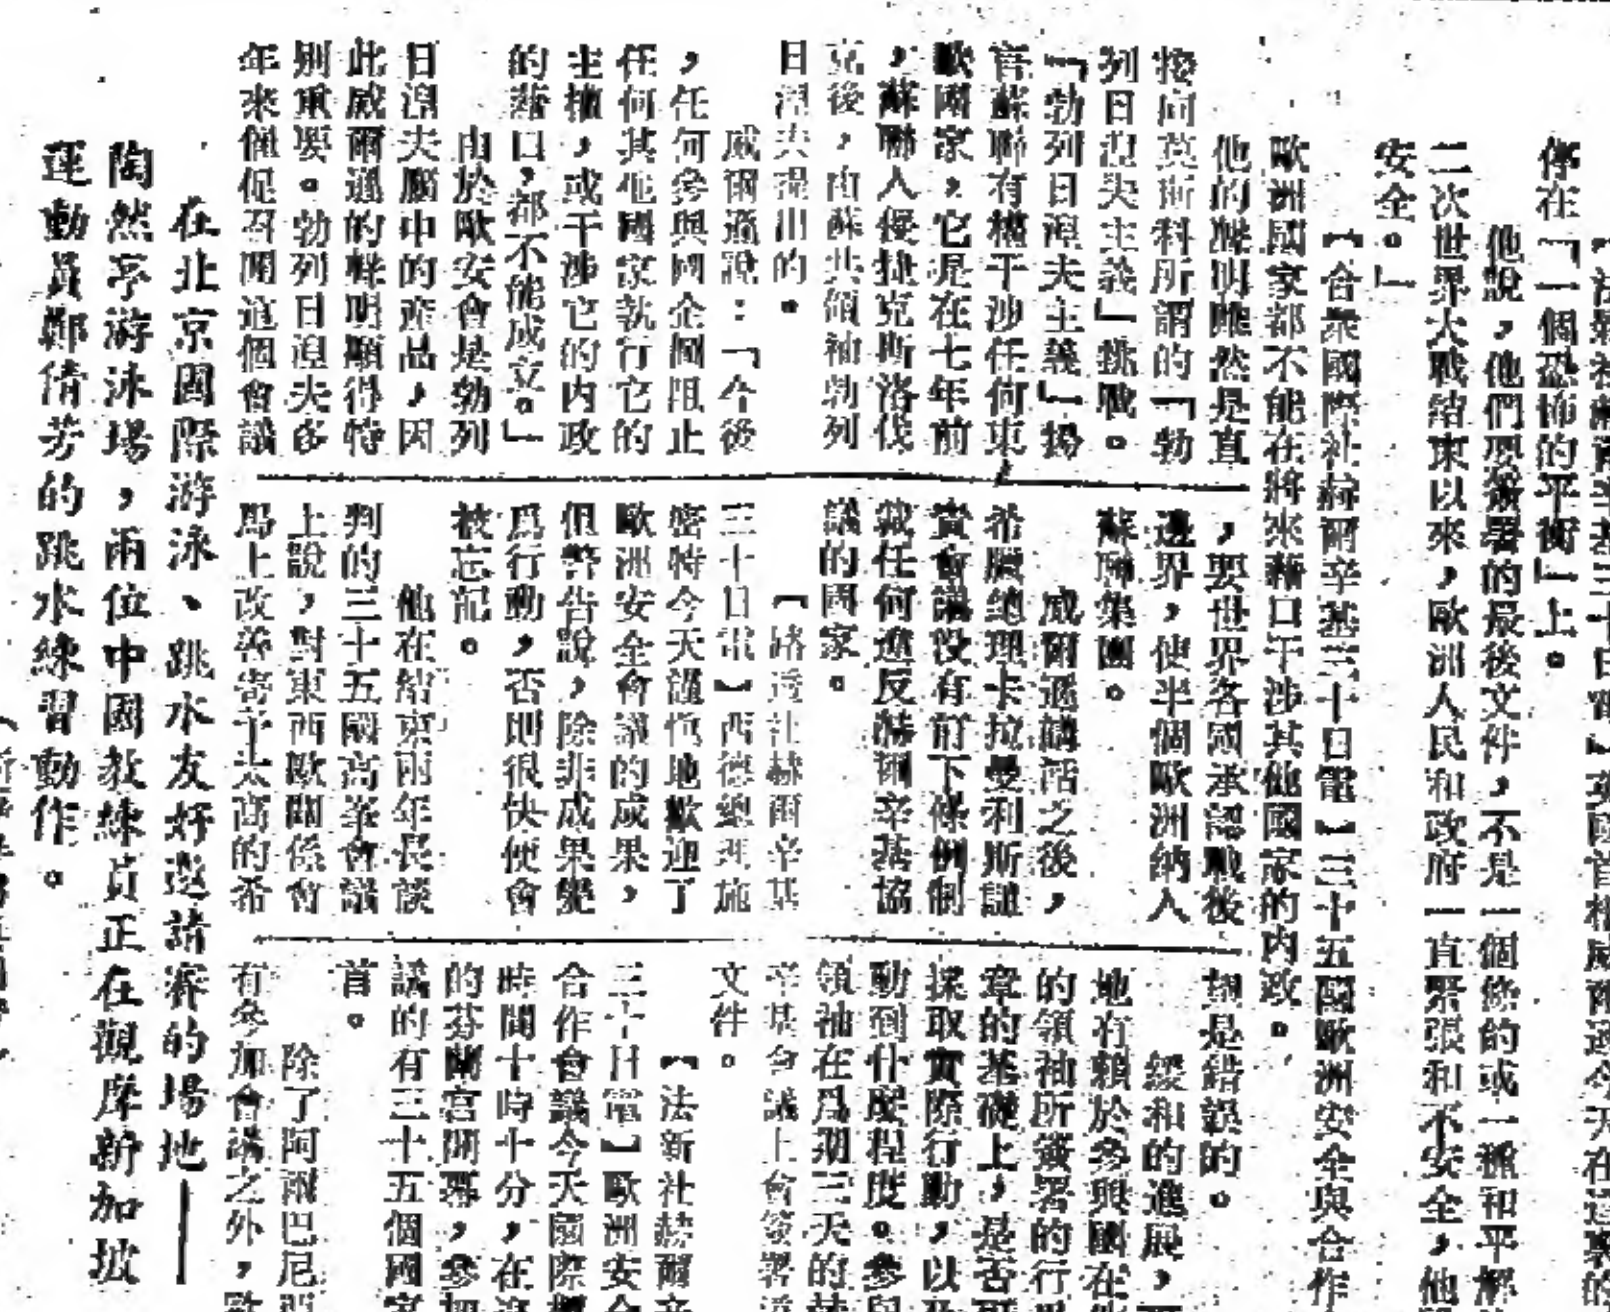 停在「一個恐怖的平衡」上。
他說，他們要簽署的最後文件，不是一個條約或一種和平解
二次世界大戰結束以來，歐洲人民和政府一直緊張和不安全，他
安全。」
【合衆國際社赫爾辛基三十日電】三十五國歐洲安全與合作
歐洲國家都不能在將來藉口干涉其他國家的內政。
他的聲明雖然是直
接向莫斯科所謂的「勃
列日湼夫主義」挑戰。
「勃列日湼夫主義」揚
言蘇聯有權干涉任何東
歐國家，它是在七年前
，蘇聯人侵捷克斯洛伐
克後，由蘇共領袖勃列
日湼夫提出的。
威爾遜說：「今後
，任何參與國企圖阻止
任何其他國家執行它的
主權，或干涉它的內政
的藉口，都不能成立。」
由於歐安會是勃列
日湼夫腦中的產品，因
此威爾遜的聲明顯得特
別重要。勃列日湼夫多
年來催促召開這個會議
，要世界各國承認戰後
邊界，使半個歐洲納入
蘇聯集團。
威爾遜講話之後，
希臘總理卡拉曼利斯譴
責會議沒有訂下條例制
裁任何違反赫爾辛基協
議的國家。
【路透社赫爾辛基
三十日電】西德總理施
密特今天謹慎地歡迎了
歐洲安全會議的成果，
但警告說，除非成果變
爲行動，否則很快便會
被忘記。
他在結束兩年長談
判的三十五國高峯會議
上說，對東西歐關係會
馬上改善寄予太高的希
望是錯誤的。
緩和的進展，
地有賴於參與國在
的領袖所簽署的行
章的基礎上，是否
採取實際行動，以
動到什麽程度。參與
領袖在爲期三天的
辛基會議上會簽署
文件。
【法新社赫爾辛
三十日電】歐洲安全
合作會議今天國際標
時間十時十分，在
的芬蘭宮開幕，參加
議的有三十五個國家
首。
除了阿爾巴尼亞
有參加會議之外，歐
在北京國際游泳、跳水友好邀請賽的場地——
陶然亭游泳場，兩位中國教練員正在觀摩新加坡
運動員鄭倩芳的跳水練習動作。